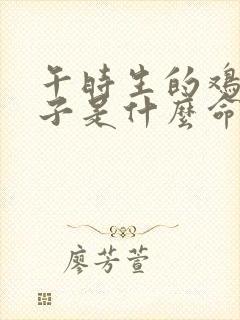 午时生的鸡
子是什麼命
廖芳萱